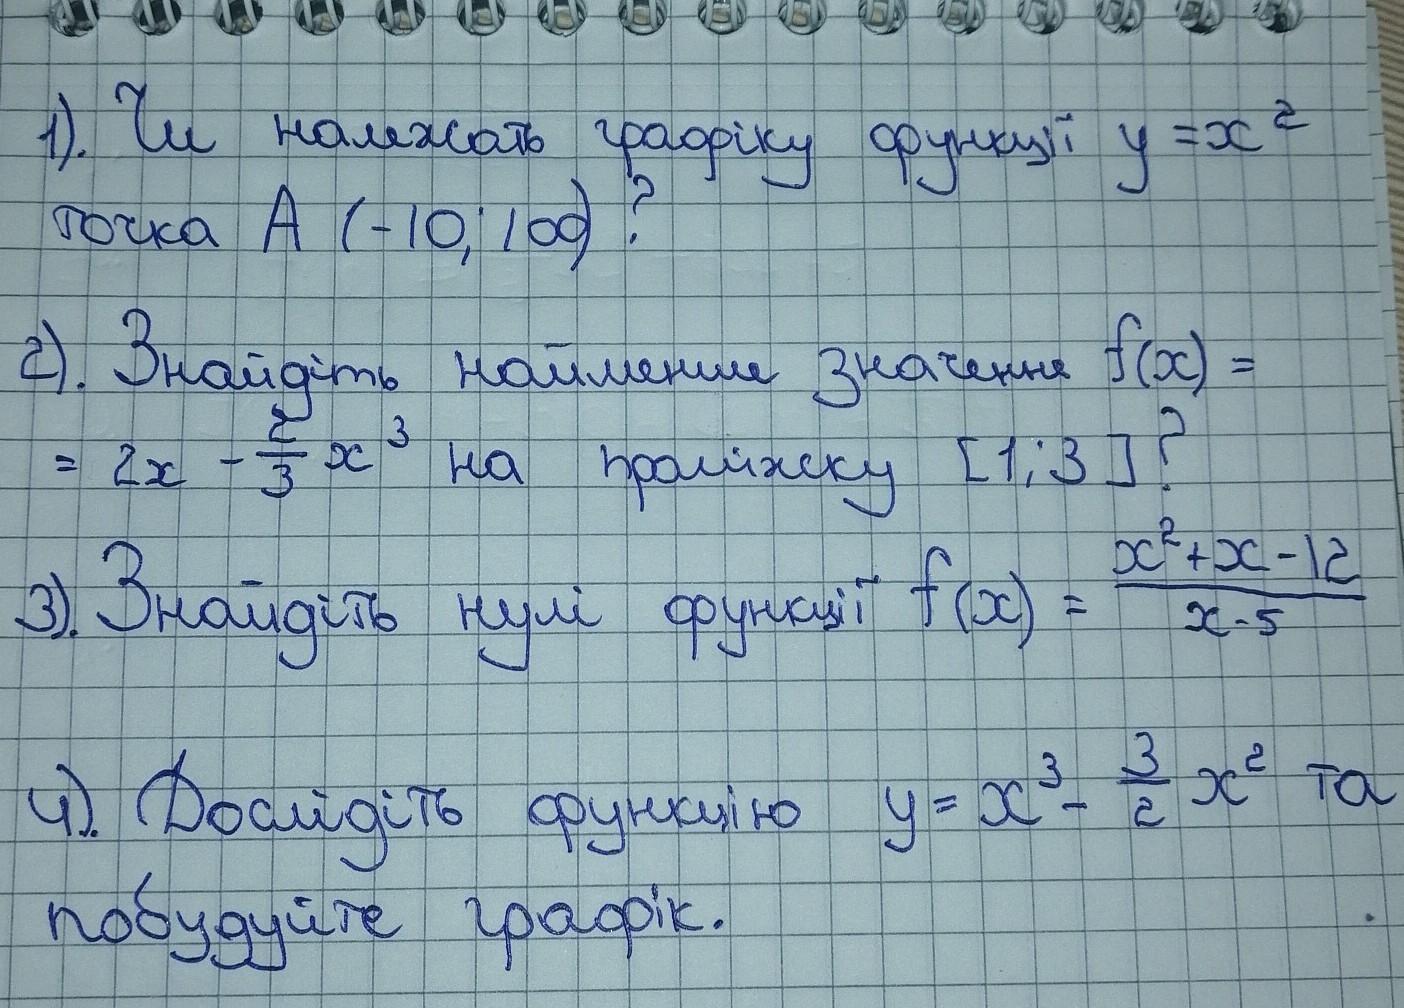 1). Чи належать графіку функції y = x²
точка A (-10; 100) ?
2). Знайдіть найменше значення f(x) =
= 2x - 2/3 x³ на проміжку [1; 3] ?
3). Знайдіть нулі функції f(x) = (x² + x - 12)/(x - 5)
4). Дослідіть функцію y = x³ - 3/2 x² та
побудуйте графік.